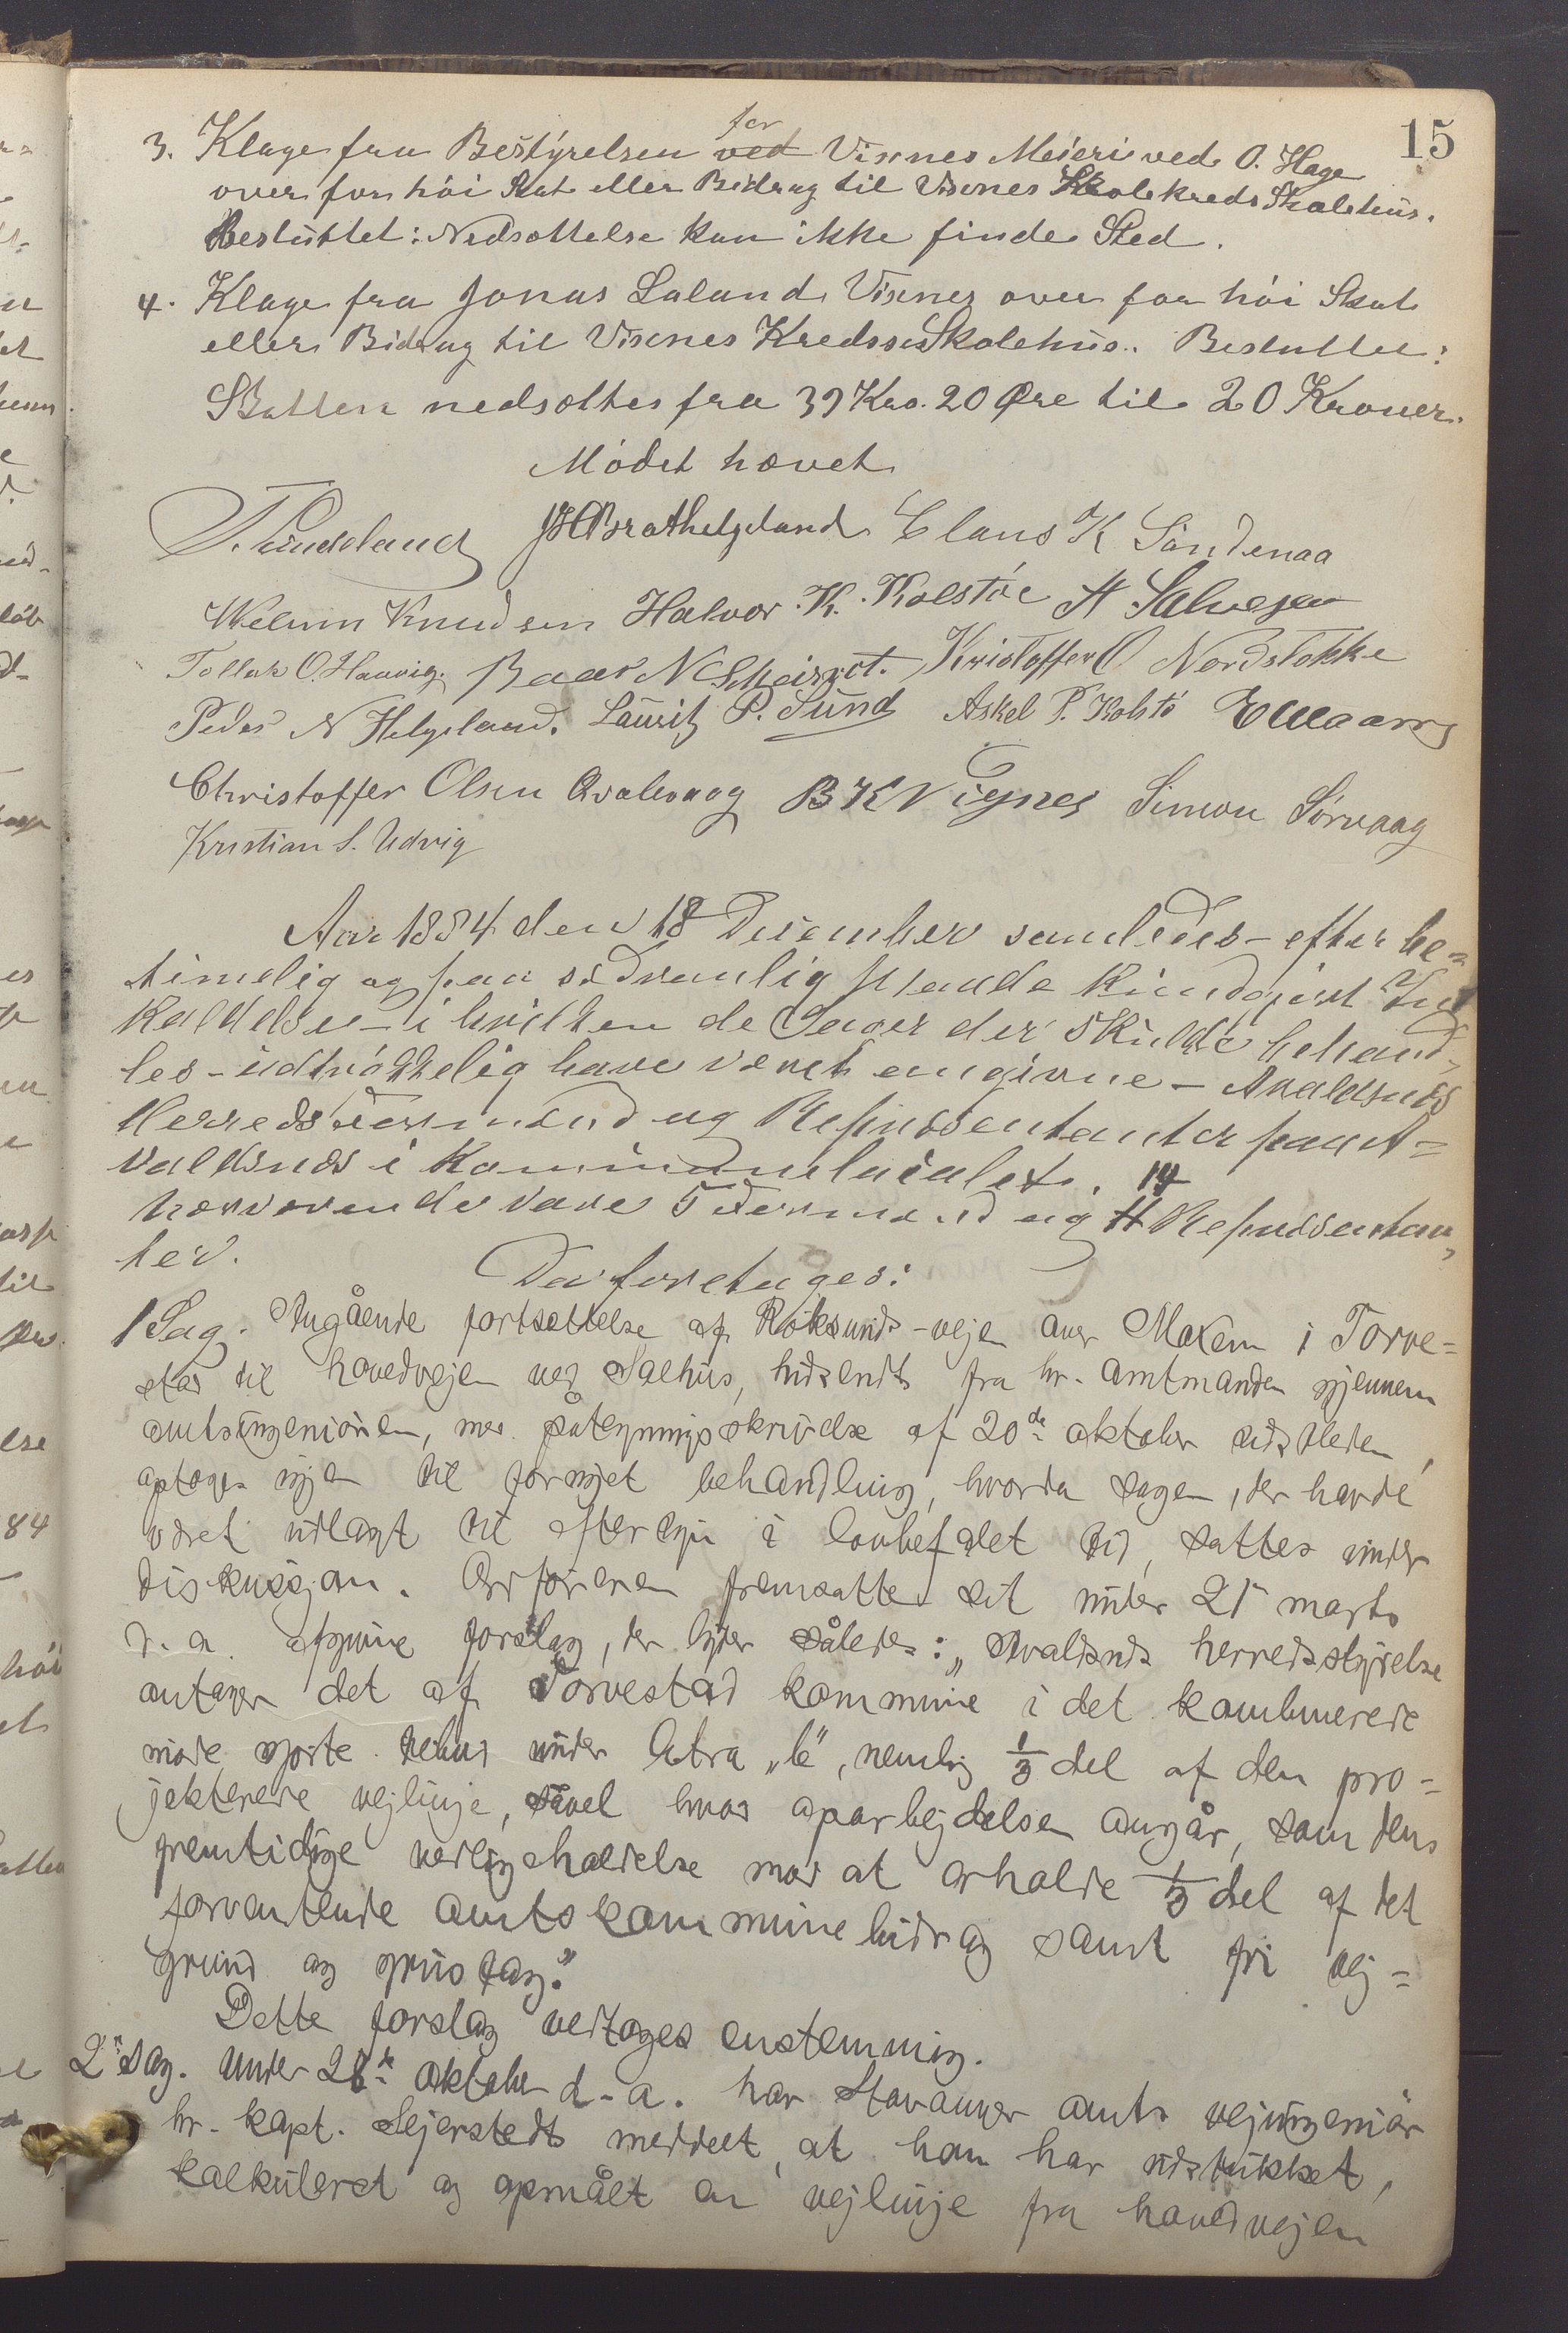 15
for
3. Klage fra Bestyrelsen ved Visnes Meieri ved O. Hage
over for høi Skat eller Bidrag til Visnes Skolekreds Skolehus.
Besluttet: Nedsættelse kan ikke finde Sted.
4. Klage fra Jonas Laland Visnes over for høi Skat
eller Bidrag til Visnes Kredses Skolehus. Besluttet:
Skatten nedsættes fra 39 Kro. 20 Øre til 20 Kroner.
Mødet hævet
JHBrathelgeland Claus K Søndenaa
Knudsen Halvor K. Kolstøe H Salvesen
Tollak O. Haavig. Baar N Kristoffer O Nordstokke
Peder N Helgeland. Lauritz P. Sund Askel P. Kolstø
Christoffer Olsen Kvalevaag B K Vignes Simon Sørvaag
Kristian S. Udvig
Aar 1884 den 18 Desember samledes – efter be=
timelig og paa sædvanlig Maade kundgjort Ind
kaldelse – i hvilken de Sager der skulde behand-
les – udtrykkelig have været angivne – Avaldsnes
Herreds Formænd og Repræsentanter paa A=
valdsnes i Kommunelokalet. 14
Nærværende vare 5 Formænd og 11 Repræsentan-
ter.
Der foretages:
1 Sag. Angående fortsættelse af Røksunds-vejen over Moxen i Torve=
stad til hovedvejen ved Salhus, hidsendt fra hr. amtmanden gjennem
amtsingeniøren, med påtegningsskrivelse af 20de oktober sidstleden,
optoges igjen til fornyet behandling, hvorda sagen, der havde
været udlagt til eftersyn i lovbefalet tid, sattes under
diskussjon. Ordføreren fremsatte sit under 21 marts
d. a. afgivne forslag, der lyder således: „Avaldsnes herredsstyrelse
antager det af Torvestad kommune i det kombinerede
møde gjorte tilbud under litra „b", nemlig 1/3 del af den pro=
jekterede vejlinje, såvel hvad oparbejdelsen angår, som dens
fremtidige vedligeholdelse mod at erholde 1/3 del af det
forventende amtskommunebidrag samt fri vej=
grund og grustag."
Dette forslag vedtoges enstemmig.
2 sag. Under 28de oktober d. a. har Stavanger amts vejingeniør
hr. kapt. Sejerstedt meddelt, at han har udstukket,
kalkuleret og opmålt en vejlinje fra hovedvejen